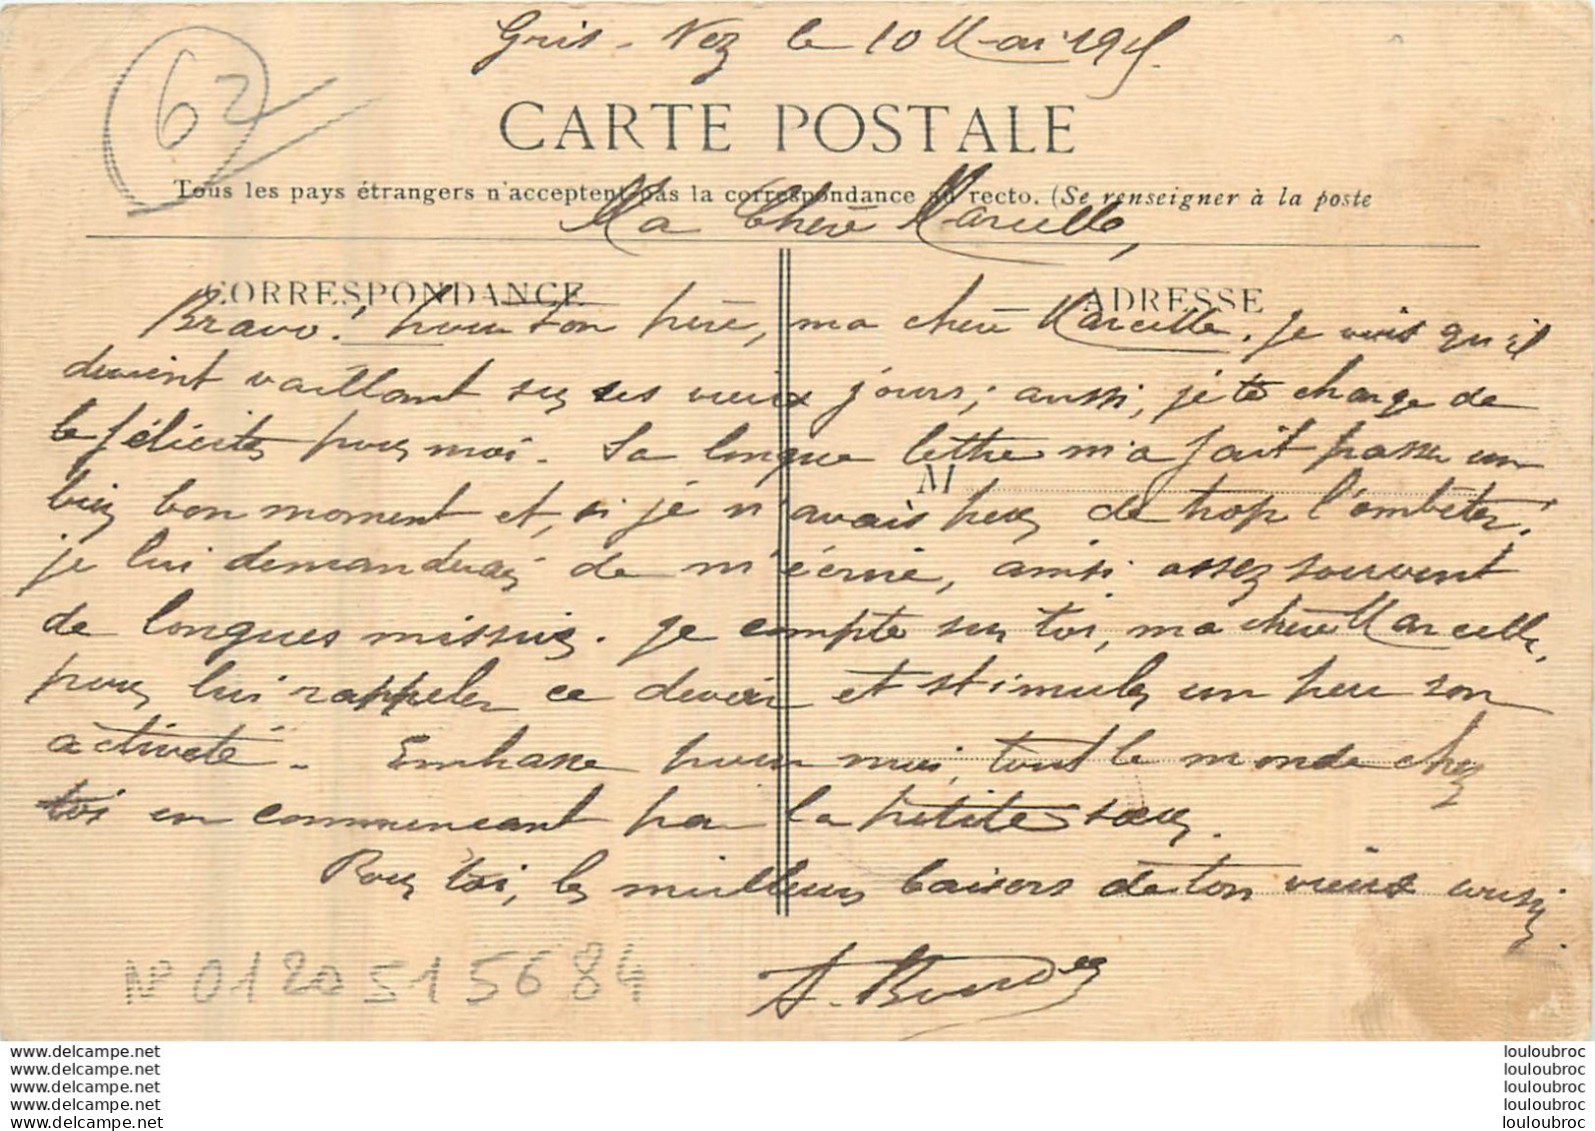 Gris-Nez le 10 Mai 1915.
62
CARTE POSTALE
Tous les pays étrangers n'acceptent pas la correspondance au recto. (Se renseigner à la poste
Ma Chère Marcelle,
CORRESPONDANCE
ADRESSE
Bravo! pour ton père, ma chère Marcelle. Je vois qu'il
devient vaillant sur ses vieux jours; aussi, je te charge de
le féliciter pour moi. Sa longue lettre m'a fait passer un
M
bien bon moment et, si je n'avais peur de trop l'embêter,
je lui demanderais de m'écrire, ainsi assez souvent
de longues missives. Je compte sur toi, ma chère Marcelle,
pour lui rappeler ce devoir et stimuler un peu son
activité. Embrasse pour moi, tout le monde chez
toi en commençant par la petite sœur.
Pour toi, les meilleurs baisers de ton vieux cousin.
A.
N° 0120515684
www.delcampe.net
www.delcampe.net
www.delcampe.net
www.delcampe.net
www.delcampe.net
louloubroc
louloubroc
louloubroc
louloubroc
louloubroc